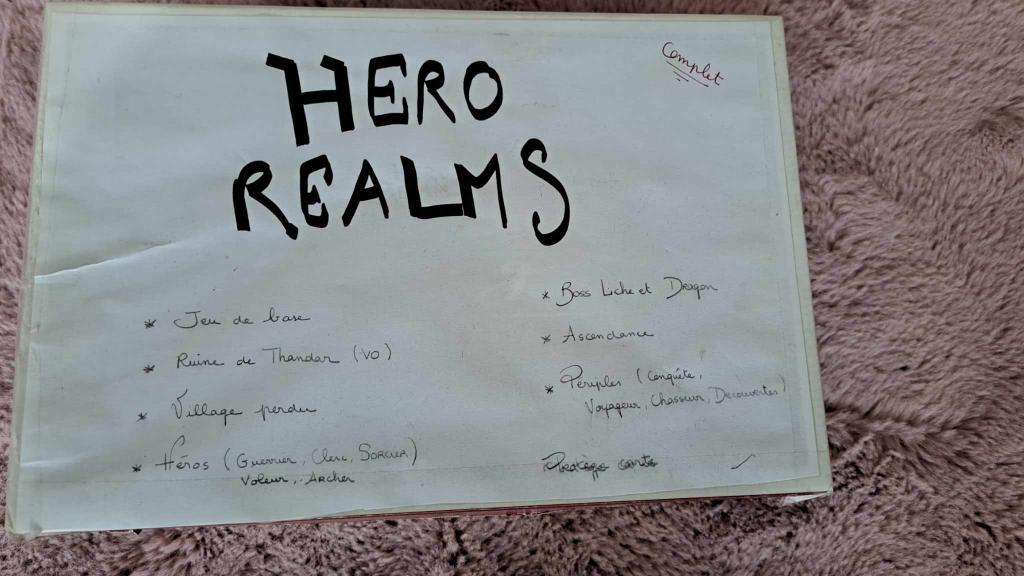 HERO
REALMS
Complet
* Jeu de base
* Ruine de Thandar (VO)
* Village perdu
* Héros (Guerrier, Clerc, SORCIER)
Voleur, Archer
* Boss Liche et Dragon
* Ascendance
* Périples (Conquête,
Voyageur, Chasseur, Découvertes)
Protège carte